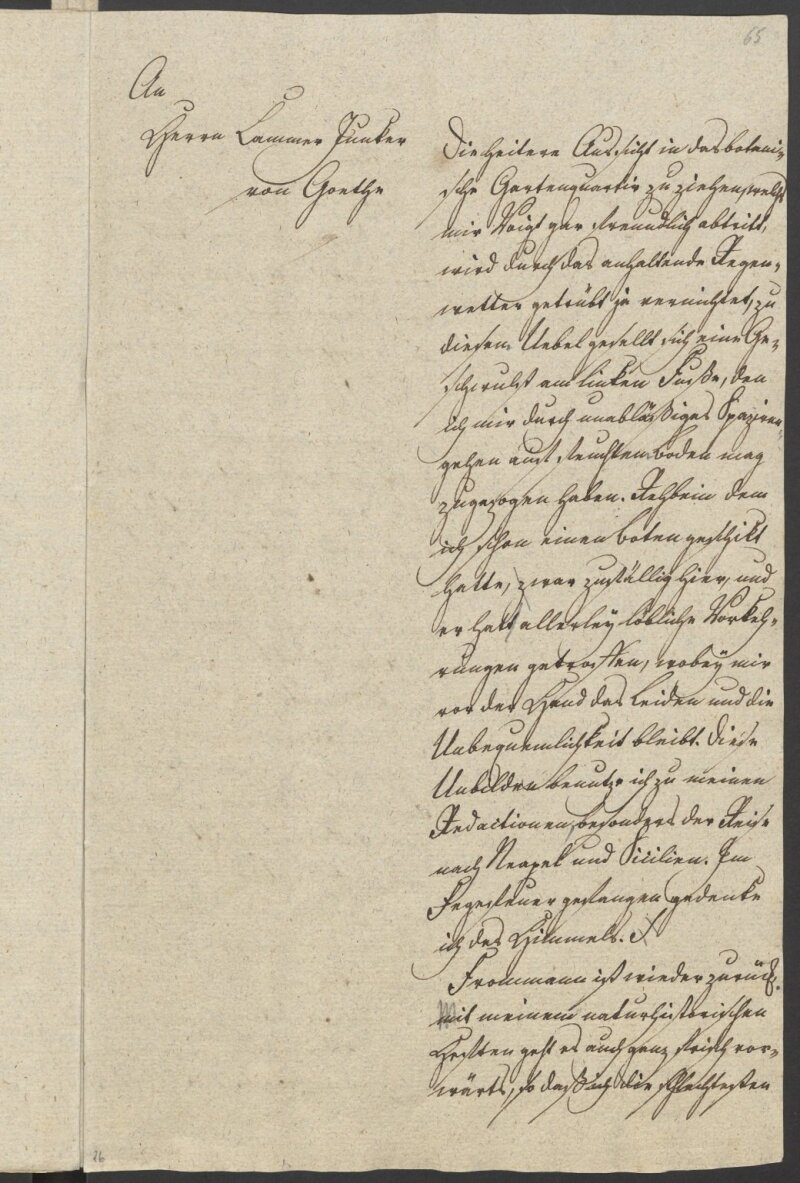 65
An
Herrn Cammer Junker
von Goethe
Die heitere Aussicht in das botani-
sche Gartenquartir zu ziehen, welches
mir Voigt gar freundlich abtritt,
wird durch das anhaltende Regen-
wetter getrübt ja vernichtet, zu
diesem Uebel gesellt sich eine Ge-
schwulst am linken Fuße, den
ich mir durch unabläßiges Spaziren-
gehen auf feuchtem Boden mag
zugezogen haben. Rehbein dem
ich schon einen Boten geschikt
hatte, zwar zufällig hier, und
er hatt allerley löbliche Vorkeh-
rungen getroffen, wobey mir
vor der Hand das Leiden und die
Unbequemlichkeit bleibt. Diese
Unbilden benutze ich zu meinen
Redactionen, besonders der Reise
nach Neapel und Sicilien. Im
Fegefeuer gefangen gedenke
ich des Himmels.
Frommann ist wieder zurück.
mit meinem naturhistorischen
Heften geht es auch ganz frisch vor-
wärts, so daß ich die schlechtesten
26